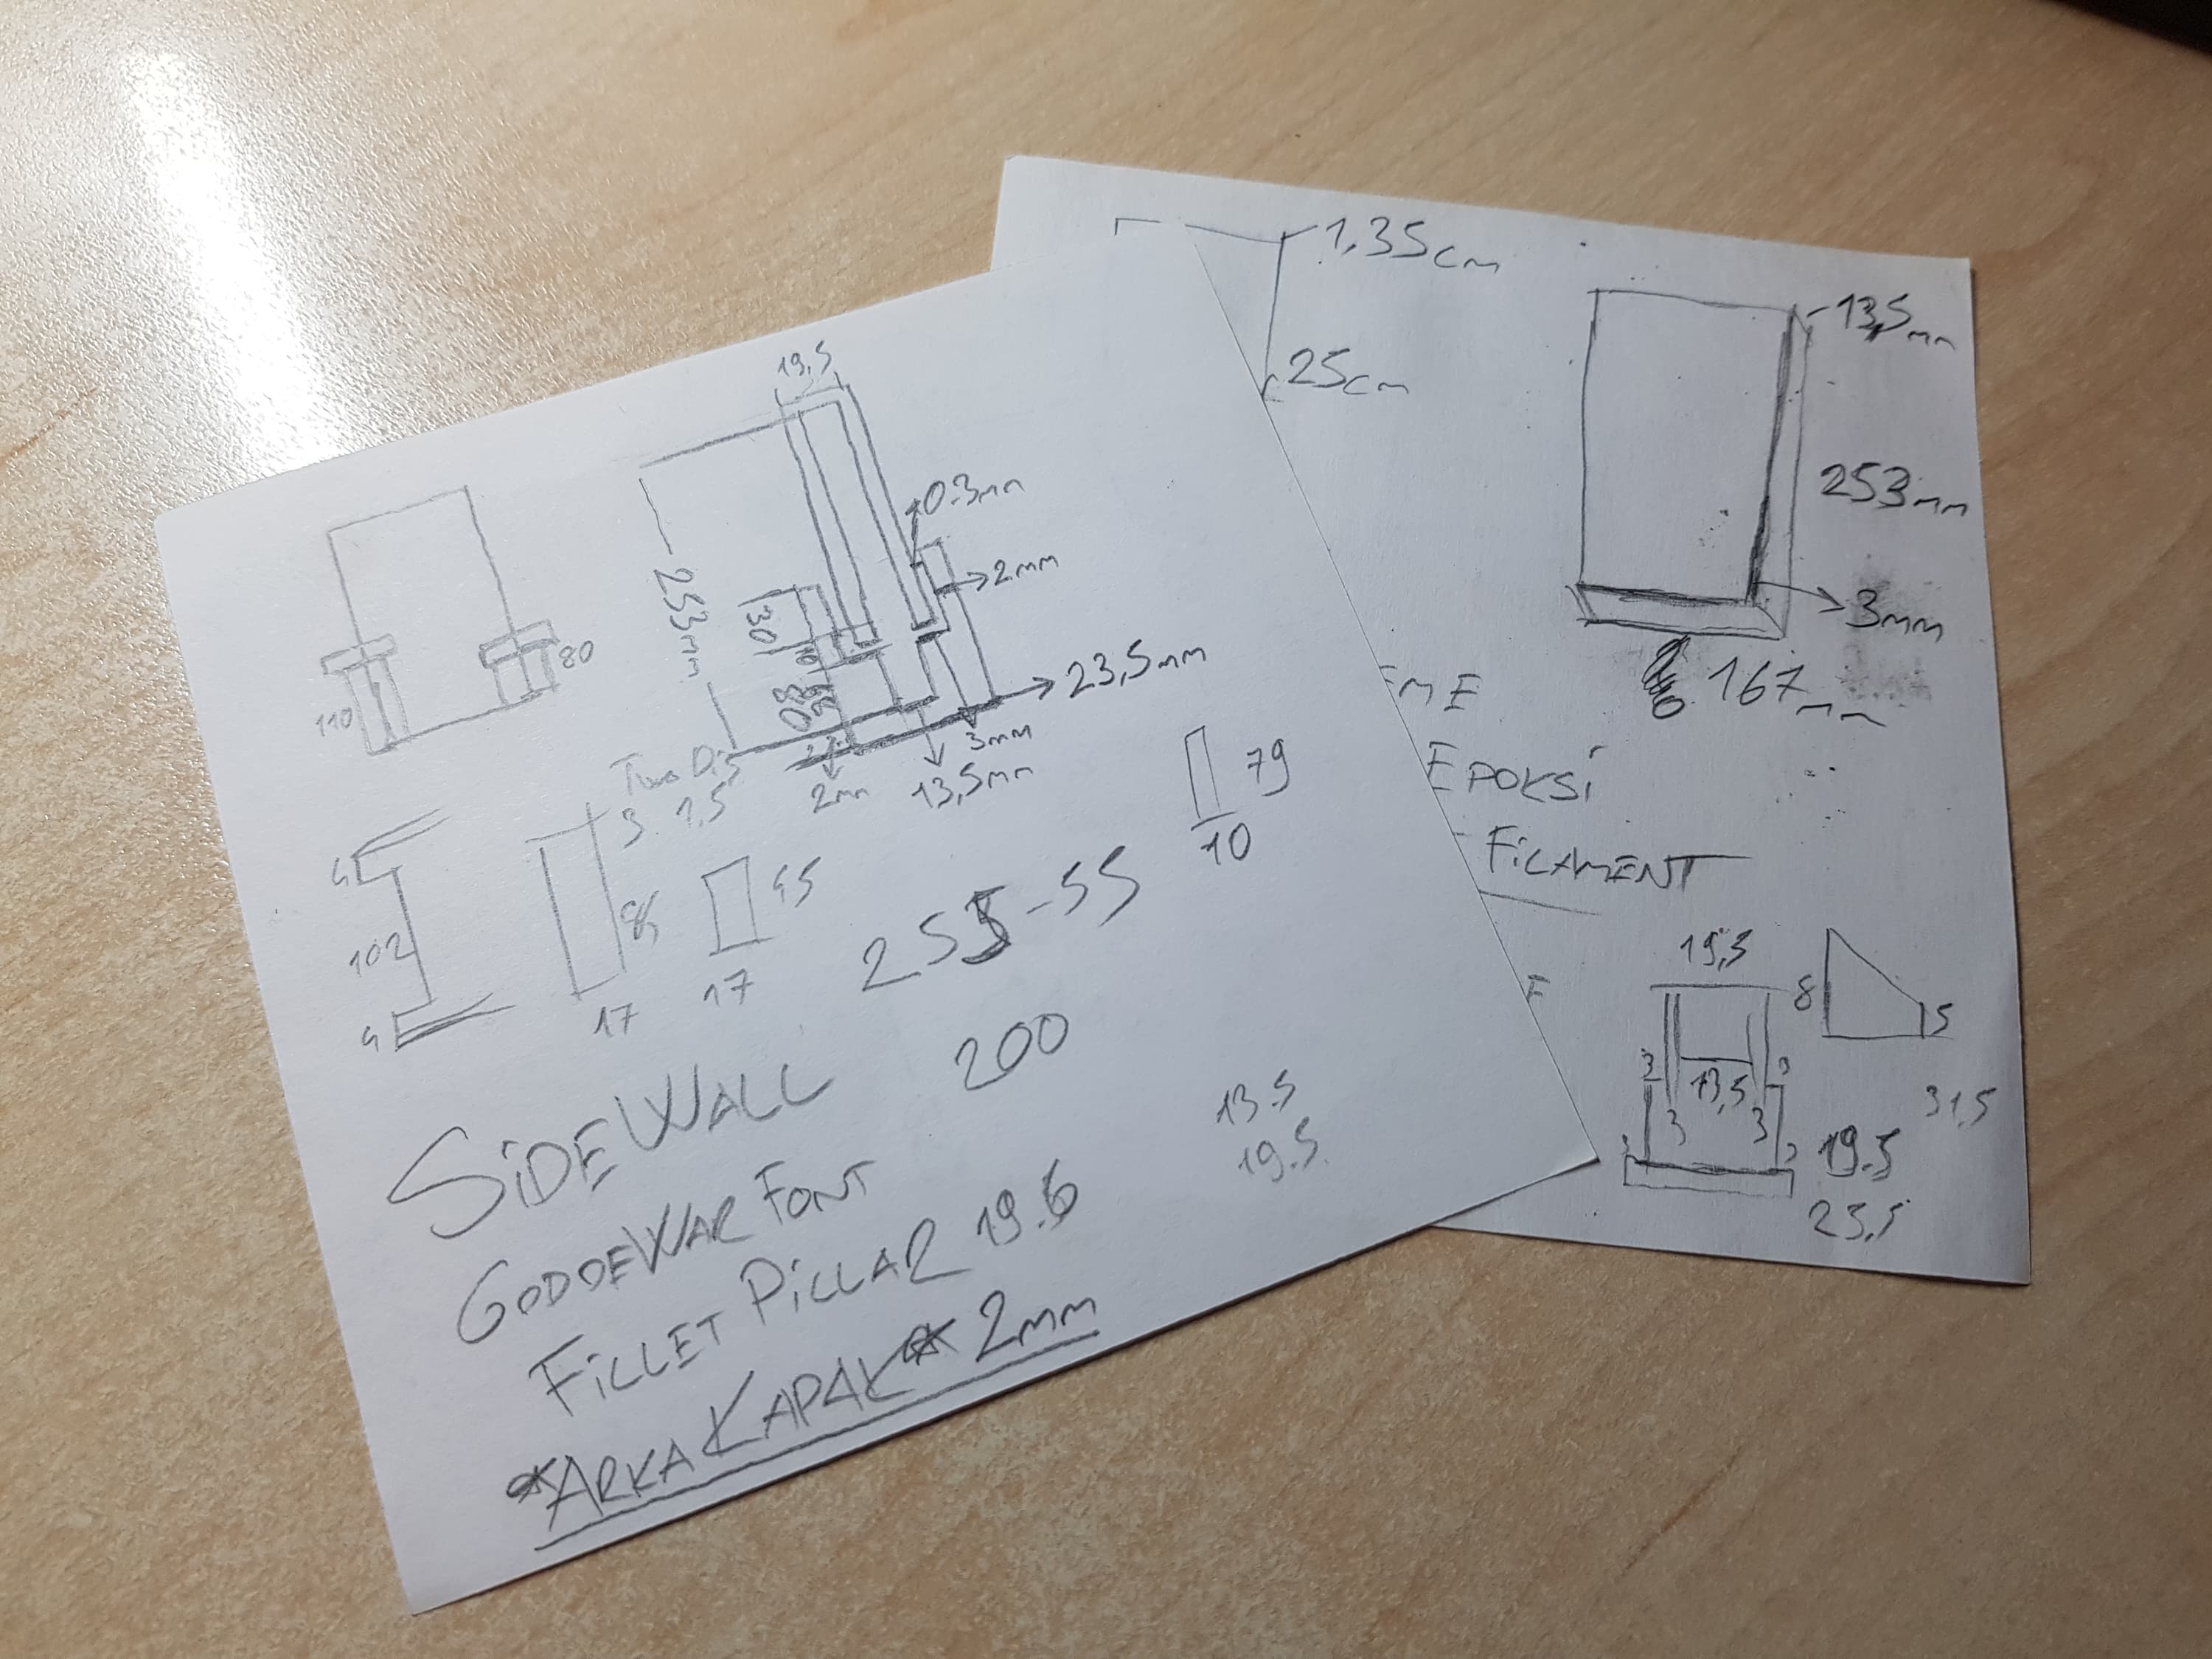 19,5
0.3mm
2mm
253mm
30
80
110
80
23,5mm
3mm
13,5mm
2mm
3 1,5
79
10
4
102
4
85
17
45
17
255-55
200
SiDEWALL
GODOFWAR FONT
FiLLET PiLLAR 19.6
*ARKA KAPAK* 2mm
13.5
19.5
1,35cm
25cm
13,5mm
253mm
3mm
167mm
EPOKSİ
FiLAMENT
19,5
8
5
3
13,5
3
3
3
31,5
19.5
23,5